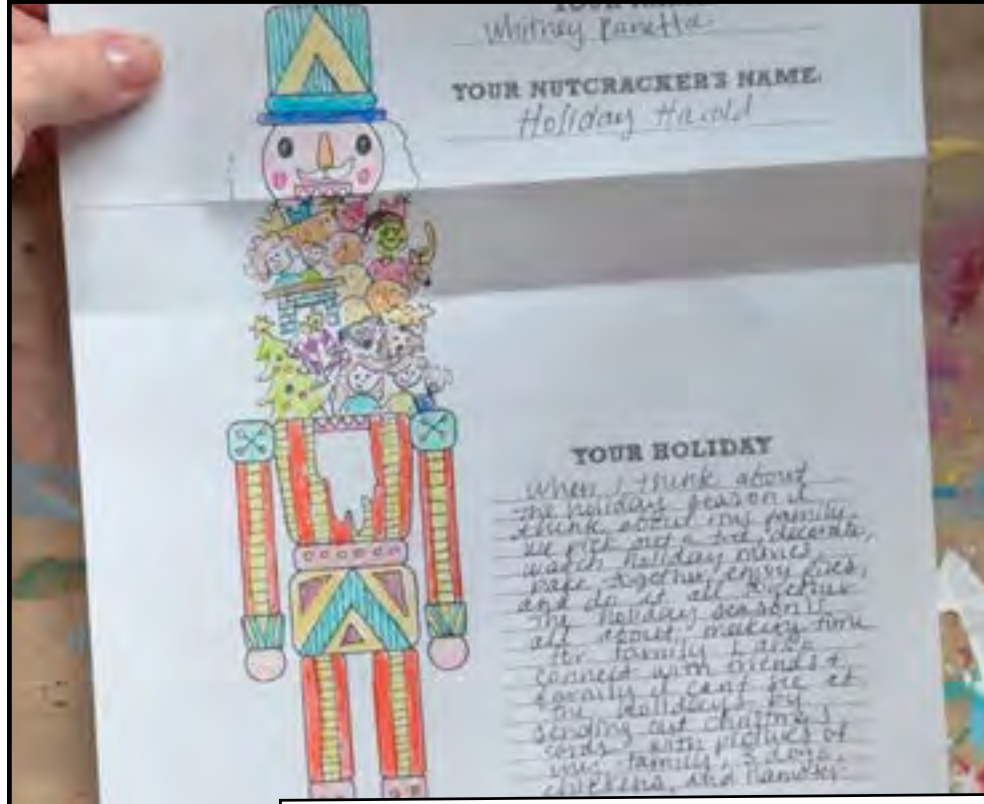 YOUR NAME:
Whitney Panetta
YOUR NUTCRACKER'S NAME:
Holiday Harold
YOUR HOLIDAY
When I think about
the holiday season I
think about my family.
We pick out a tree, decorate,
watch holiday movies,
bake together, enjoy lives,
and do it all together.
The holiday season is
all about making time
for family. I also
connect with friends +
family I cant see at
the holidays by
sending out
cards with pictures of
my family, 3 dogs,
chickens, and hamster